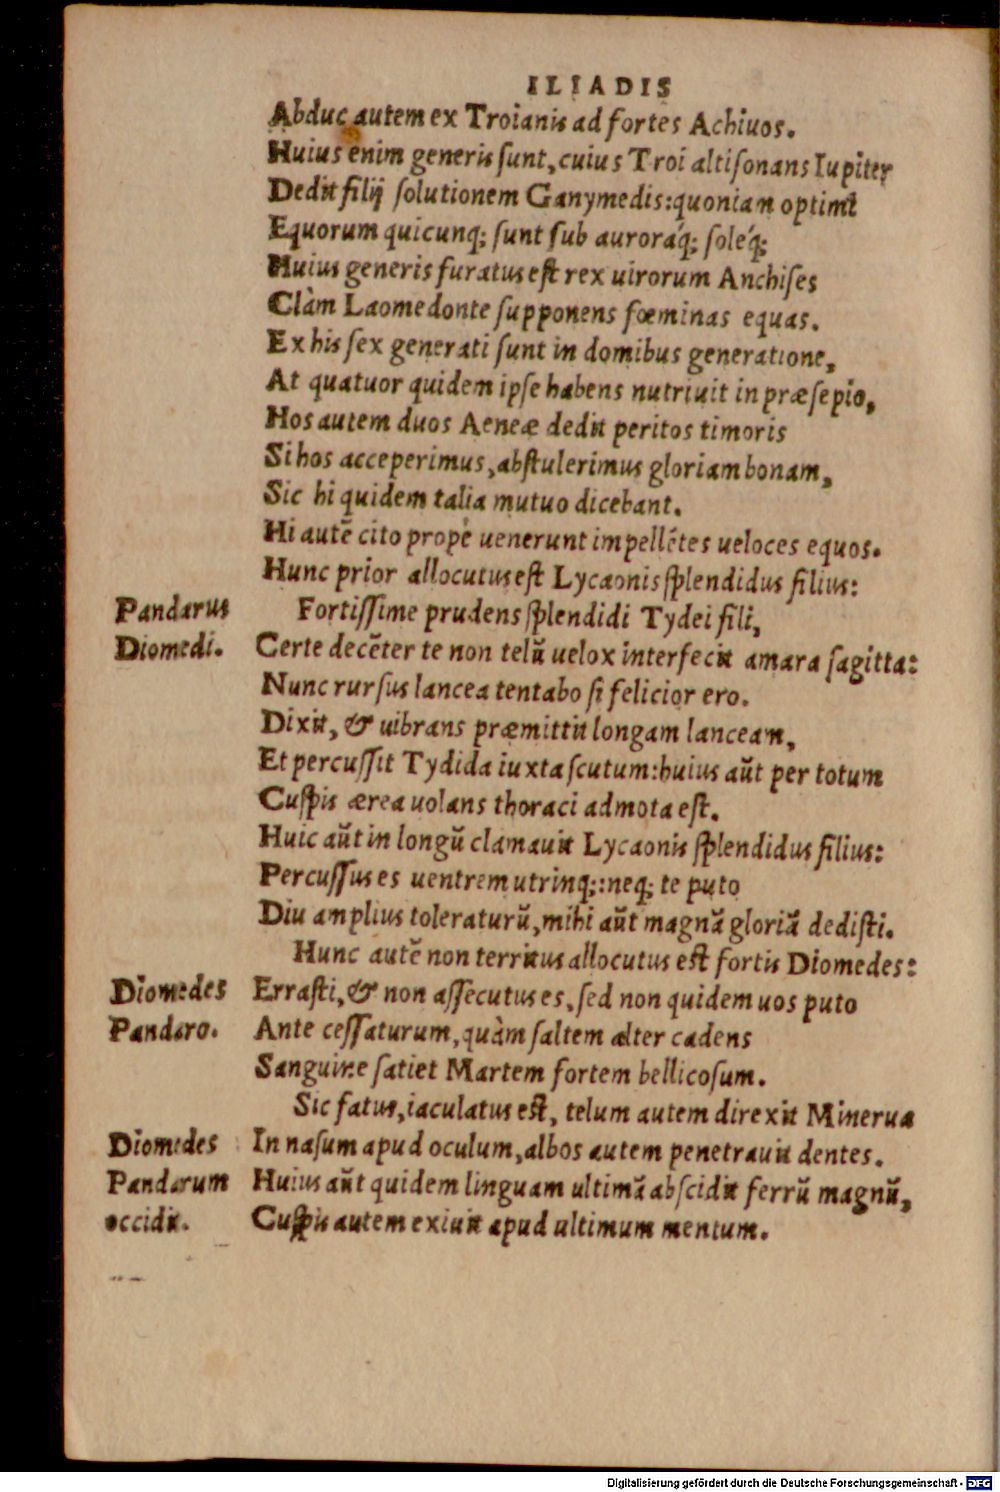 ILIADIS
Abduc autem ex Troianis ad fortes Achiuos.
Huius enim generis sunt, cuius Troi altisonans Iupiter
Dedit filij solutionem Ganymedis: quoniam optimi
Equorum quicunq; sunt sub auroraq́; soleq́;
Huius generis furatus est rex uirorum Anchises
Clàm Laomedonte supponens fœminas equas.
Ex his sex generati sunt in domibus generatione,
At quatuor quidem ipse habens nutriuit in præsepio,
Hos autem duos Aeneæ dedit peritos timoris
Si hos acceperimus, abstulerimus gloriam bonam,
Sic hi quidem talia mutuo dicebant.
Hi autē cito propè uenerunt impellētes ueloces equos.
Hunc prior allocutus est Lycaonis splendidus filius:
Pandarus Fortissime prudens splendidi Tydei fili,
Diomedi. Certe decēter te non telū uelox interfecit amara sagitta:
Nunc rursus lancea tentabo si felicior ero.
Dixit, & uibrans præmittit longam lanceam,
Et percussit Tydida iuxta scutum: huius aūt per totum
Cuspis ærea uolans thoraci admota est.
Huic aūt in longū clamauit Lycaonis splendidus filius:
Percussus es uentrem utrinq;: neq; te puto
Diu amplius toleraturū, mihi aūt magnā gloriā dedisti.
Hunc autē non territus allocutus est fortis Diomedes:
Diomedes Errasti, & non assecutus es, sed non quidem uos puto
Pandaro. Ante cessaturum, quàm saltem alter cadens
Sanguine satiet Martem fortem bellicosum.
Sic fatus, iaculatus est, telum autem direxit Minerua
Diomedes In nasum apud oculum, albos autem penetrauit dentes.
Pandarum Huius aūt quidem linguam ultimā abscidit ferrū magnū,
occidit. Cuspis autem exiuit apud ultimum mentum.
Digitalisierung gefördert durch die Deutsche Forschungsgemeinschaft - DFG